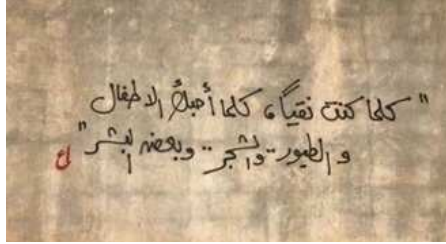 " كلما كنت نقياً، كلما أحبك الاطفال
و الطيور .. والشجر .. وبعض البشر "